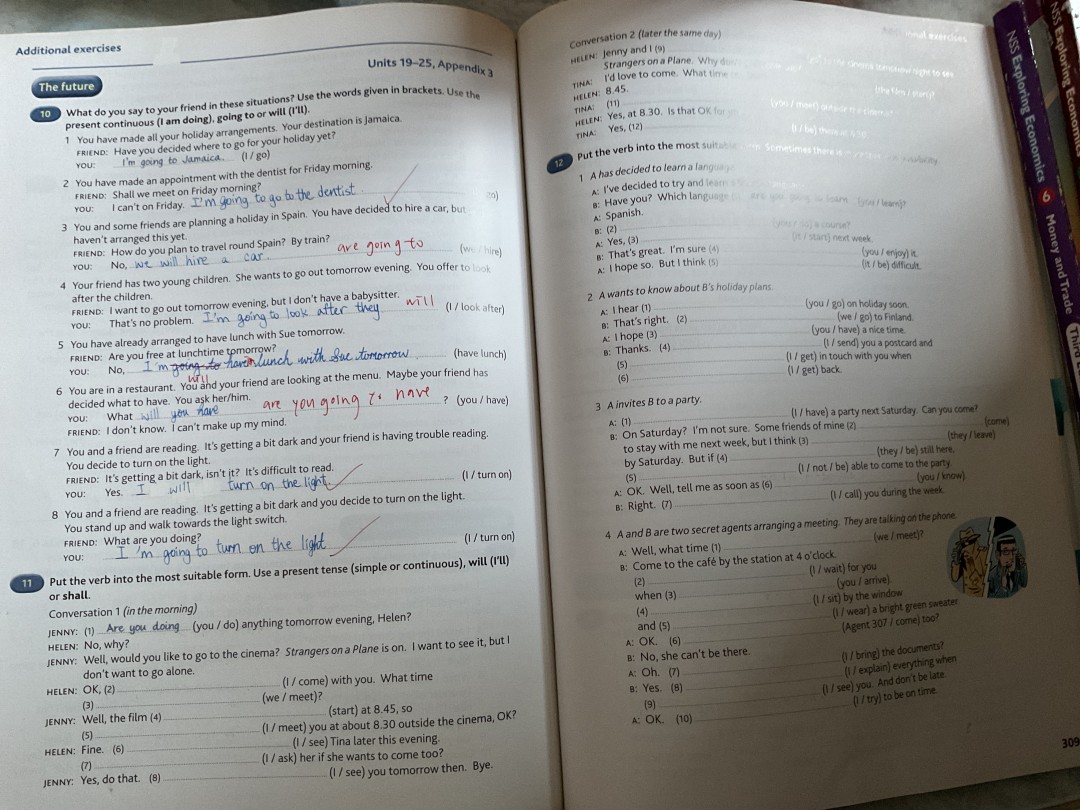 Additional exercises
Units 19–25, Appendix 3
The future
10 What do you say to your friend in these situations? Use the words given in brackets. Use the
present continuous (I am doing), going to or will (I'll).
1 You have made all your holiday arrangements. Your destination is Jamaica.
FRIEND: Have you decided where to go for your holiday yet?
YOU: I'm going to Jamaica. (I / go)
2 You have made an appointment with the dentist for Friday morning.
FRIEND: Shall we meet on Friday morning?
YOU: I can't on Friday. I'm going to go to the dentist.
3 You and some friends are planning a holiday in Spain. You have decided to hire a car, but
haven't arranged this yet.
FRIEND: How do you plan to travel round Spain? By train? are going to
YOU: No, we will hire a car. (we / hire)
4 Your friend has two young children. She wants to go out tomorrow evening. You offer to look
after the children.
FRIEND: I want to go out tomorrow evening, but I don't have a babysitter. will
YOU: That's no problem. I'm going to look after they (I / look after)
5 You have already arranged to have lunch with Sue tomorrow.
FRIEND: Are you free at lunchtime tomorrow?
YOU: No, I'm going to having lunch with Sue tomorrow (have lunch)
will
6 You are in a restaurant. You and your friend are looking at the menu. Maybe your friend has
decided what to have. You ask her/him. are you going to have
YOU: What will you have ? (you / have)
FRIEND: I don't know. I can't make up my mind.
7 You and a friend are reading. It's getting a bit dark and your friend is having trouble reading.
You decide to turn on the light.
FRIEND: It's getting a bit dark, isn't it? It's difficult to read.
YOU: Yes. I will turn on the light. (I / turn on)
8 You and a friend are reading. It's getting a bit dark and you decide to turn on the light.
You stand up and walk towards the light switch.
FRIEND: What are you doing?
YOU: I'm going to turn on the light (I / turn on)
11 Put the verb into the most suitable form. Use a present tense (simple or continuous), will (I'll)
or shall.
Conversation 1 (in the morning)
JENNY: (1) Are you doing (you / do) anything tomorrow evening, Helen?
HELEN: No, why?
JENNY: Well, would you like to go to the cinema? Strangers on a Plane is on. I want to see it, but I
don't want to go alone.
HELEN: OK, (2) (I / come) with you. What time
(3) (we / meet)?
JENNY: Well, the film (4) (start) at 8.45, so
(5) (I / meet) you at about 8.30 outside the cinema, OK?
HELEN: Fine. (6) (I / see) Tina later this evening.
(7) (I / ask) her if she wants to come too?
JENNY: Yes, do that. (8) (I / see) you tomorrow then. Bye.
Conversation 2 (later the same day)
HELEN: Jenny and I (9)
Strangers on a Plane. Why
TINA: I'd love to come. What time
HELEN: 8.45.
TINA: (11) (you / meet)
HELEN: Yes, at 8.30. Is that OK for
TINA: Yes, (12) (I / be)
12 Put the verb into the most suitable Sometimes there is
1 A has decided to learn a language
A: I've decided to try and learn
B: Have you? Which language (you / learn)?
A: Spanish.
B: (2) a course?
A: Yes, (3) (it / start) next week.
B: That's great. I'm sure (4) (you / enjoy) it.
A: I hope so. But I think (5) (it / be) difficult.
2 A wants to know about B's holiday plans.
A: I hear (1) (you / go) on holiday soon.
B: That's right. (2) (we / go) to Finland.
A: I hope (3) (you / have) a nice time.
B: Thanks. (4) (I / send) you a postcard and
(5) (I / get) in touch with you when
(6) (I / get) back.
3 A invites B to a party.
A: (1) (I / have) a party next Saturday. Can you come?
B: On Saturday? I'm not sure. Some friends of mine (2) (come)
to stay with me next week, but I think (3) (they / leave)
by Saturday. But if (4) (they / be) still here,
(5) (I / not / be) able to come to the party.
A: OK. Well, tell me as soon as (6) (you / know)
B: Right. (7) (I / call) you during the week.
4 A and B are two secret agents arranging a meeting. They are talking on the phone.
A: Well, what time (1) (we / meet)?
B: Come to the café by the station at 4 o'clock.
(2) (I / wait) for you
when (3) (you / arrive).
(4) (I / sit) by the window
and (5) (I / wear) a bright green sweater.
A: OK. (6) (Agent 307 / come) too?
B: No, she can't be there.
A: Oh. (7) (I / bring) the documents?
B: Yes. (8) (I / explain) everything when
(9) (I / see) you. And don't be late.
A: OK. (10) (I / try) to be on time.
309
NSS Exploring Economics 6 Money and Trade Third
NSS Exploring Economics